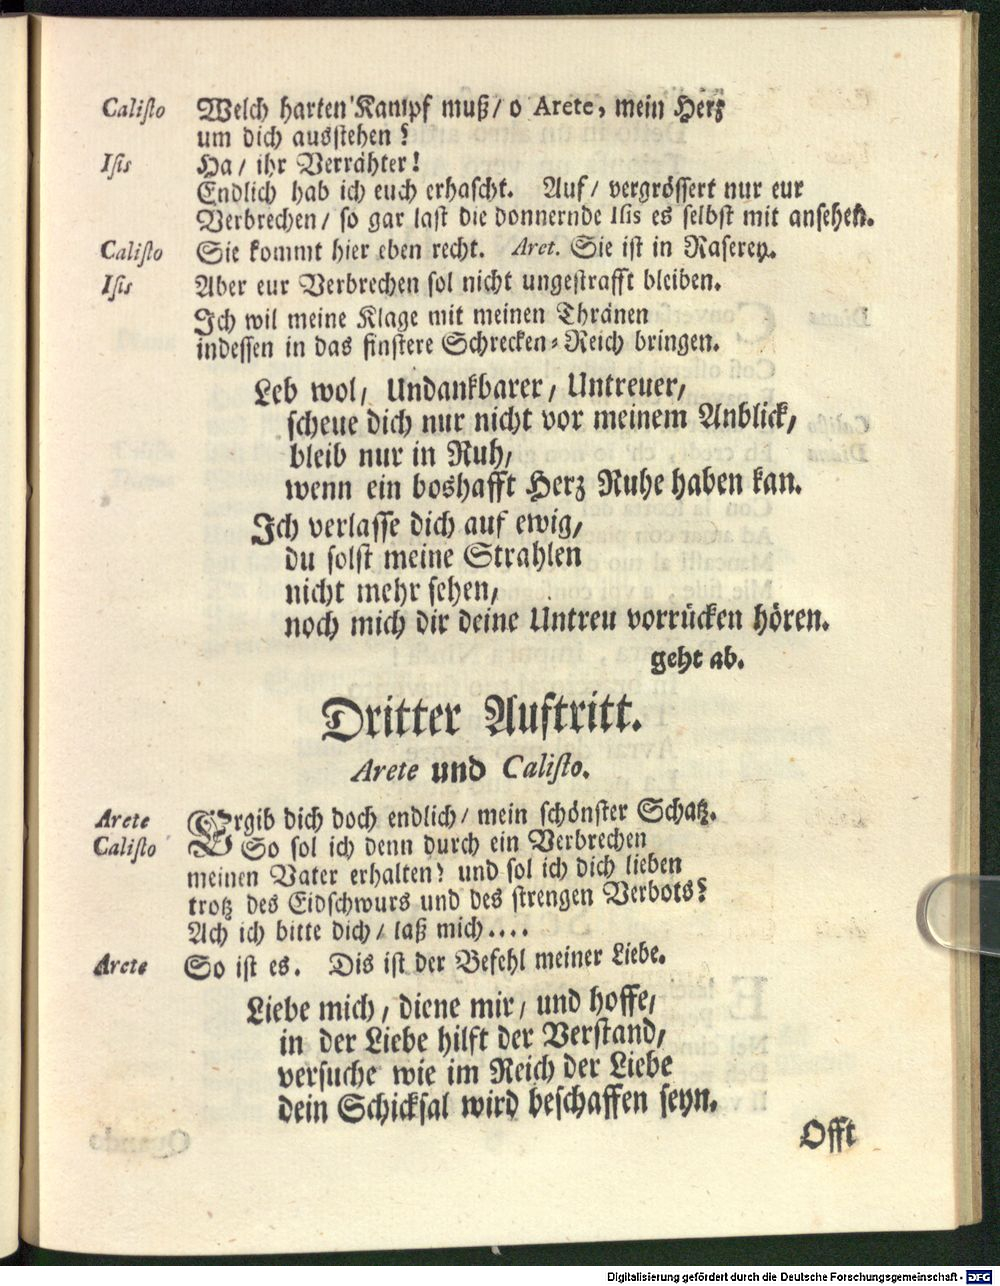 Calisto Welch harten Kampf muß/ o Arete, mein Herz
um dich ausstehen?
Isis Ha/ ihr Verrähter!
Endlich hab ich euch erhascht. Auf/ vergrössert nur eur
Verbrechen/ so gar last die donnernde Isis es selbst mit ansehen.
Calisto Sie kommt hier eben recht. Aret. Sie ist in Raserey.
Isis Aber eur Verbrechen sol nicht ungestrafft bleiben.
Ich wil meine Klage mit meinen Thränen
indessen in das finstere Schrecken-Reich bringen.
Leb wol/ Undankbarer/ Untreuer/
scheue dich nur nicht vor meinem Anblick/
bleib nur in Ruh/
wenn ein boshafft Herz Ruhe haben kan.
Ich verlasse dich auf ewig/
du solst meine Strahlen
nicht mehr sehen/
noch mich dir deine Untreu vorrücken hören.
geht ab.
Dritter Auftritt.
Arete und Calisto.
Arete Ergib dich doch endlich/ mein schönster Schatz.
Calisto So sol ich denn durch ein Verbrechen
meinen Vater erhalten? und sol ich dich lieben
trotz des Eidschwurs und des strengen Verbots?
Ach ich bitte dich/ laß mich....
Arete So ist es. Dis ist der Befehl meiner Liebe.
Liebe mich/ diene mir/ und hoffe/
in der Liebe hilft der Verstand/
versuche wie im Reich der Liebe
dein Schicksal wird beschaffen seyn.
Offt
Digitalisierung gefördert durch die Deutsche Forschungsgemeinschaft - DFG